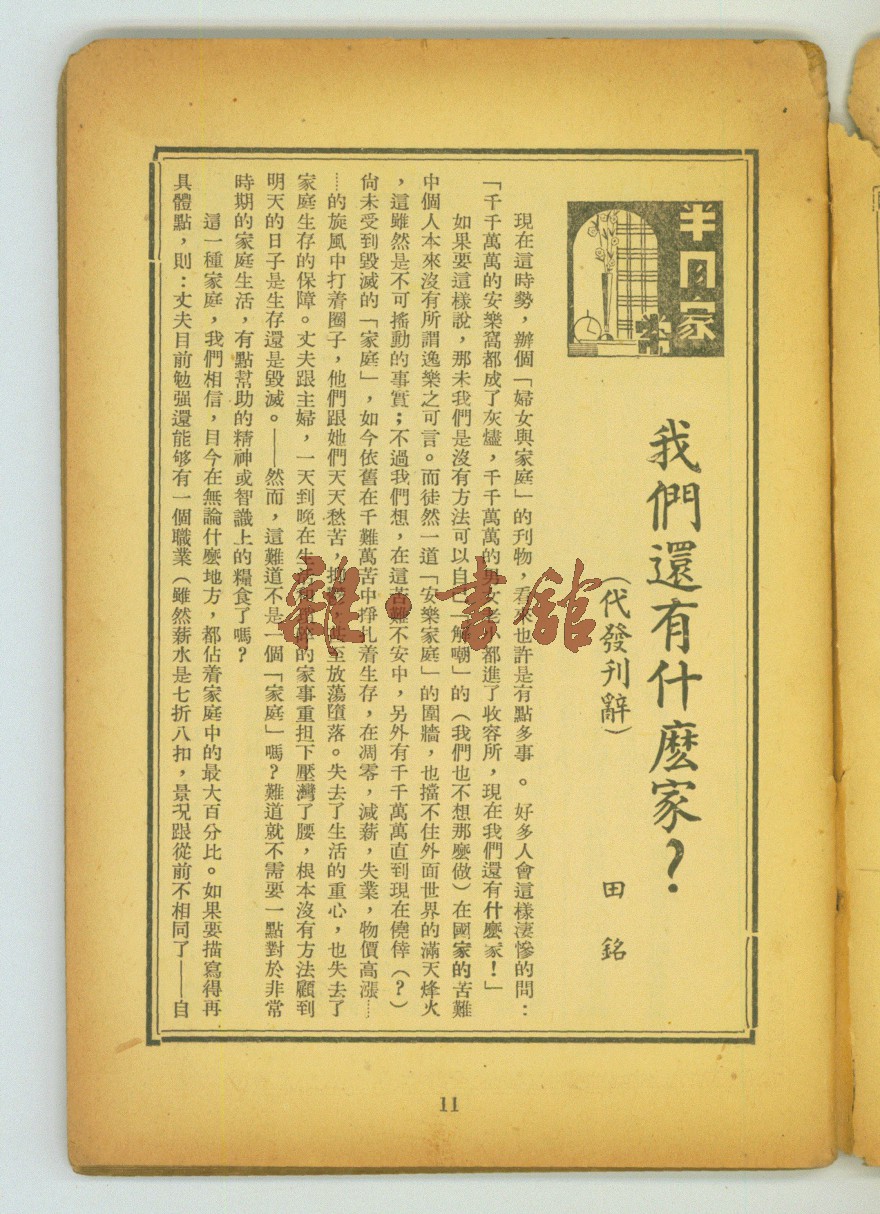 半月家
我們還有什麽家？
（代發刊辭）
田銘
現在這時勢，辦個「婦女與家庭」的刊物，看來也許是有點多事。好多人會這樣淒慘的問：
「千千萬萬的安樂窩都成了灰燼，千千萬萬的男女老小都進了收容所，現在我們還有什麽家！」
如果要這樣說，那未我們是沒有方法可以自己「解嘲」的（我們也不想那麽做）在國家的苦難
中個人本來沒有所謂逸樂之可言。而徒然一道「安樂家庭」的圍牆，也擋不住外面世界的滿天烽火
，這雖然是不可搖動的事實；不過我們想，在這苦難不安中，另外有千千萬萬直到現在僥倖（？）
尙未受到毀滅的「家庭」，如今依舊在千難萬苦中掙扎着生存，在凋零，減薪，失業，物價高漲……
……的旋風中打着圈子，他們跟她們天天愁苦，至放蕩墮落。失去了生活的重心，也失去了
家庭生存的保障。丈夫跟主婦，一天到晚在生的家事重担下壓灣了腰，根本沒有方法顧到
明天的日子是生存還是毀滅。——然而，這難道不是一個「家庭」嗎？難道就不需要一點對於非常
時期的家庭生活，有點幫助的精神或智識上的糧食了嗎？
這一種家庭，我們相信，目今在無論什麽地方，都佔着家庭中的最大百分比。如果要描寫得再
具體點，則：丈夫目前勉强還能够有一個職業（雖然薪水是七折八扣，景况跟從前不相同了——自
雜·書館
11